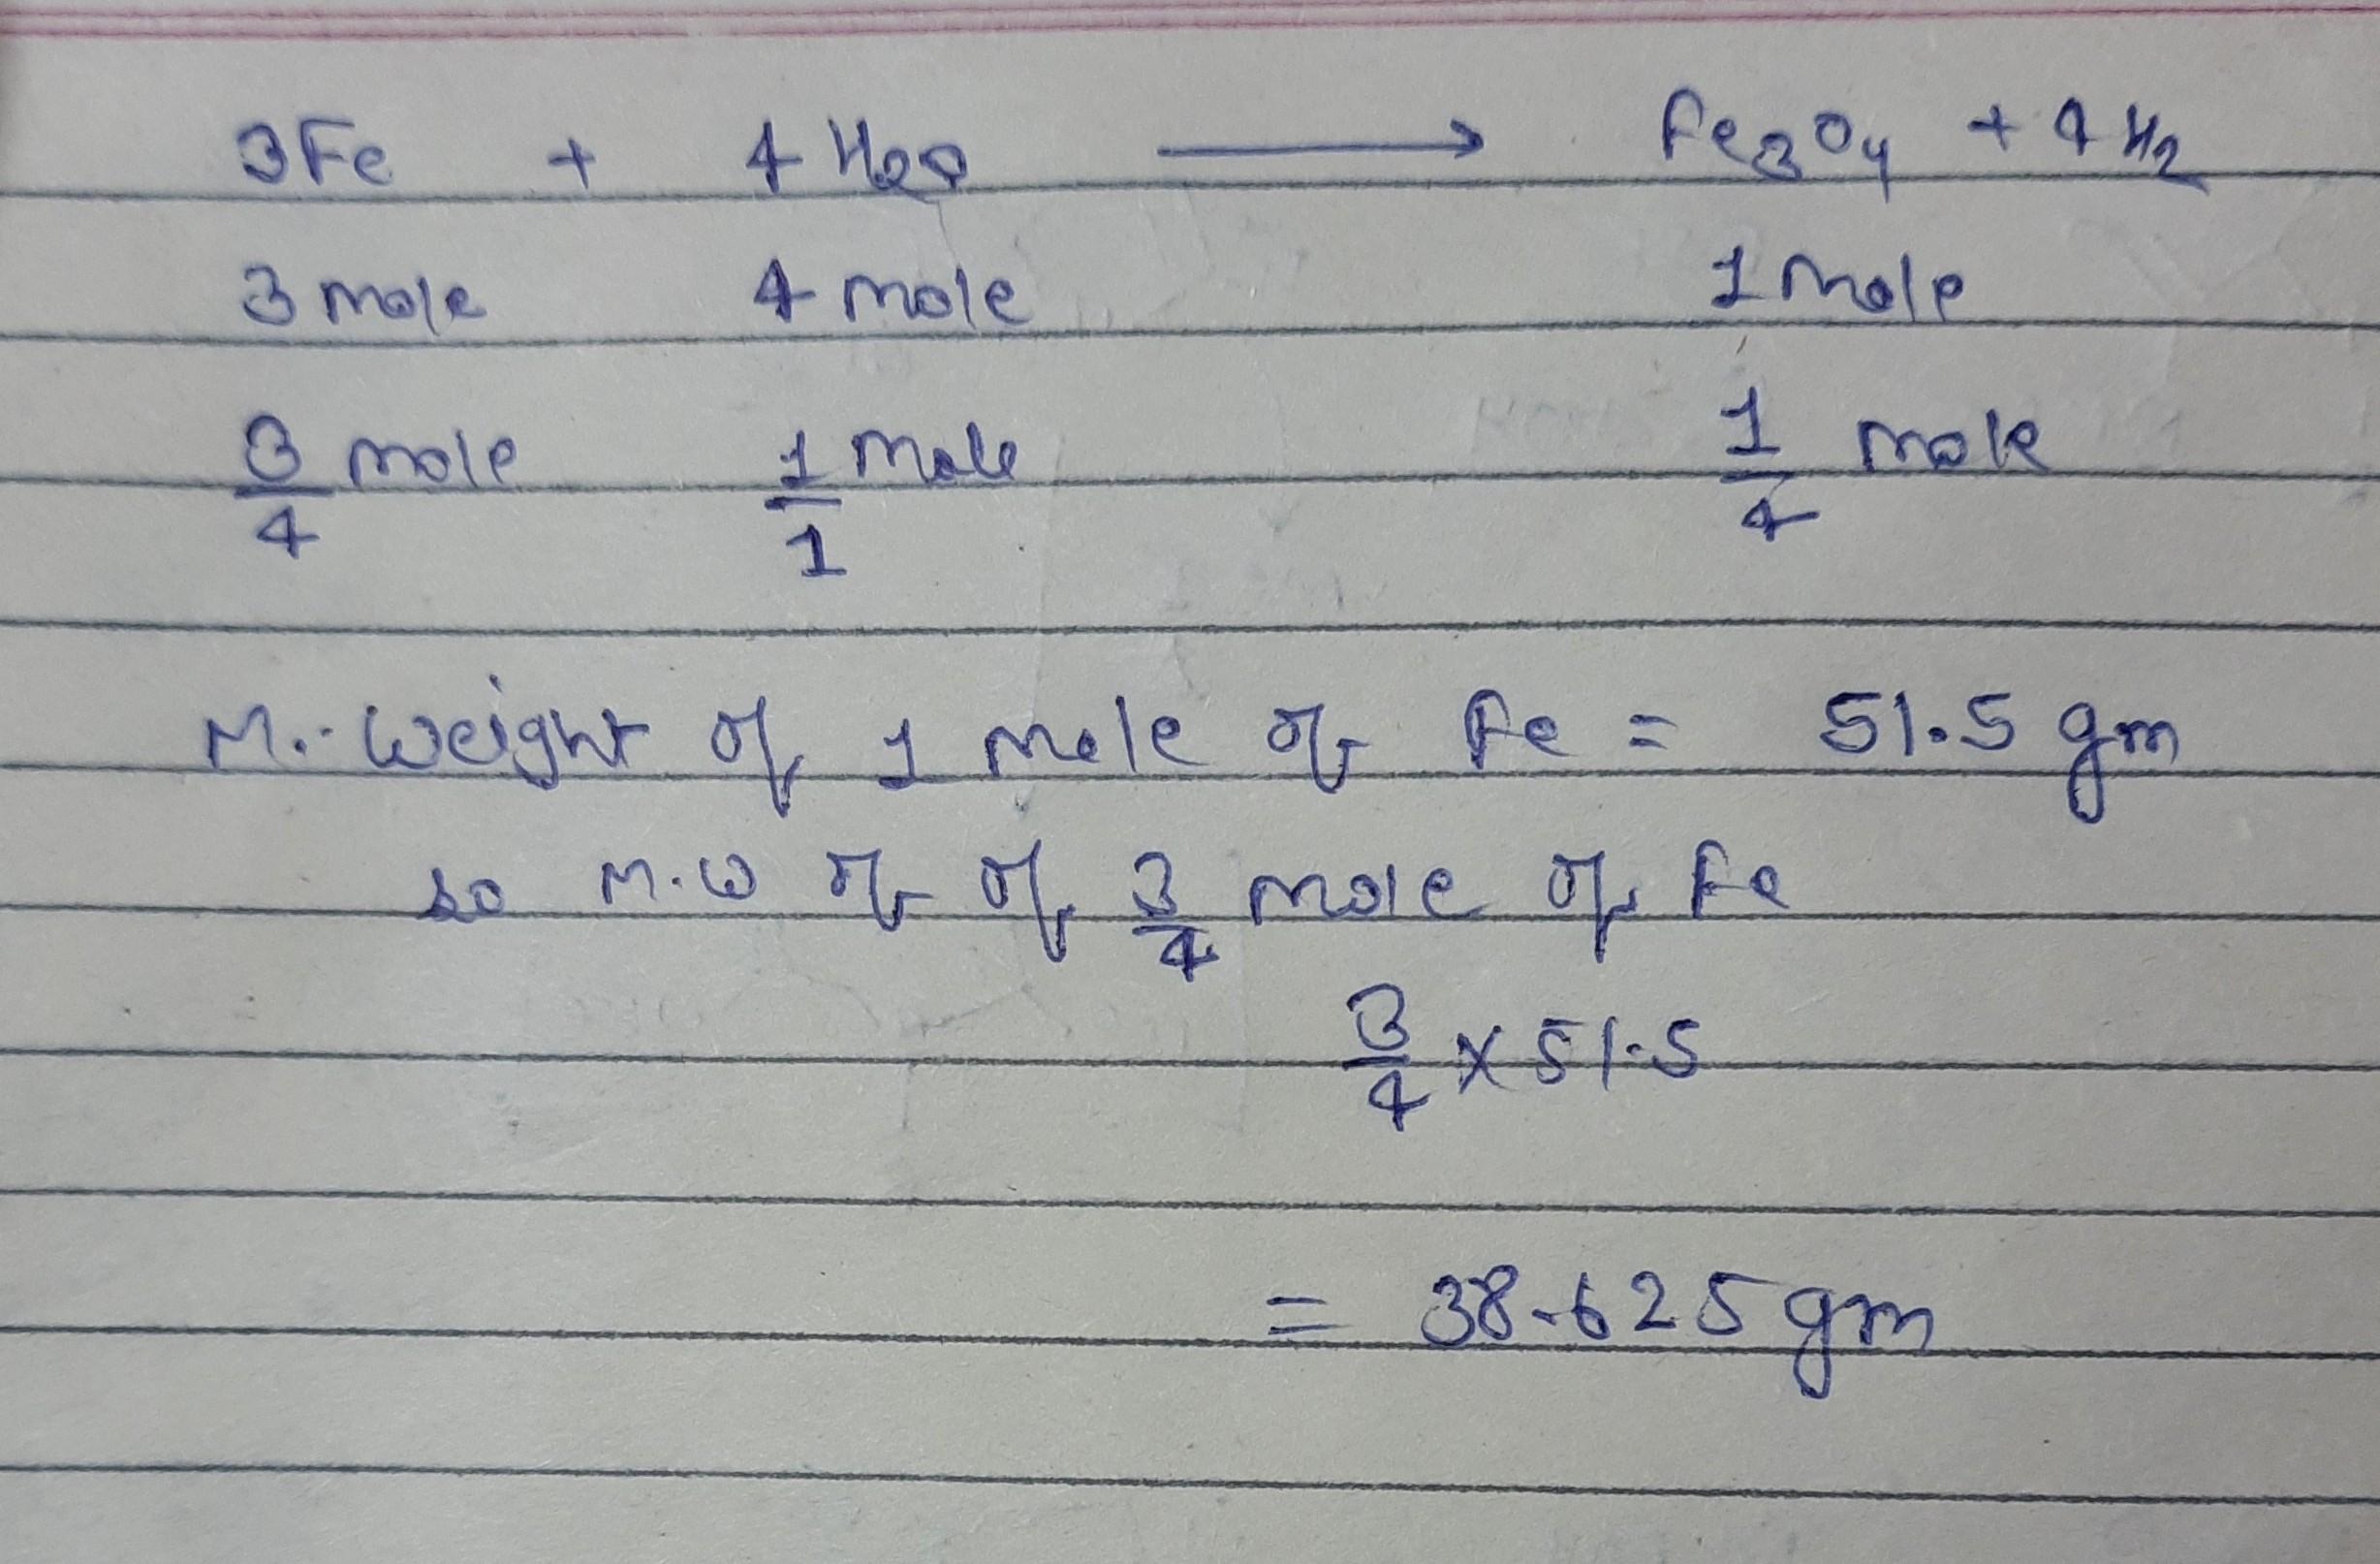 3Fe + 4 H2O ⟶ Fe3O4 + 4 H2
3 mole 4 mole 1 mole
3/4 mole 1/1 mole 1/4 mole
M. weight of 1 mole of Fe = 51.5 gm
so M.W of of 3/4 mole of Fe
3/4 × 51.5
= 38.625 gm